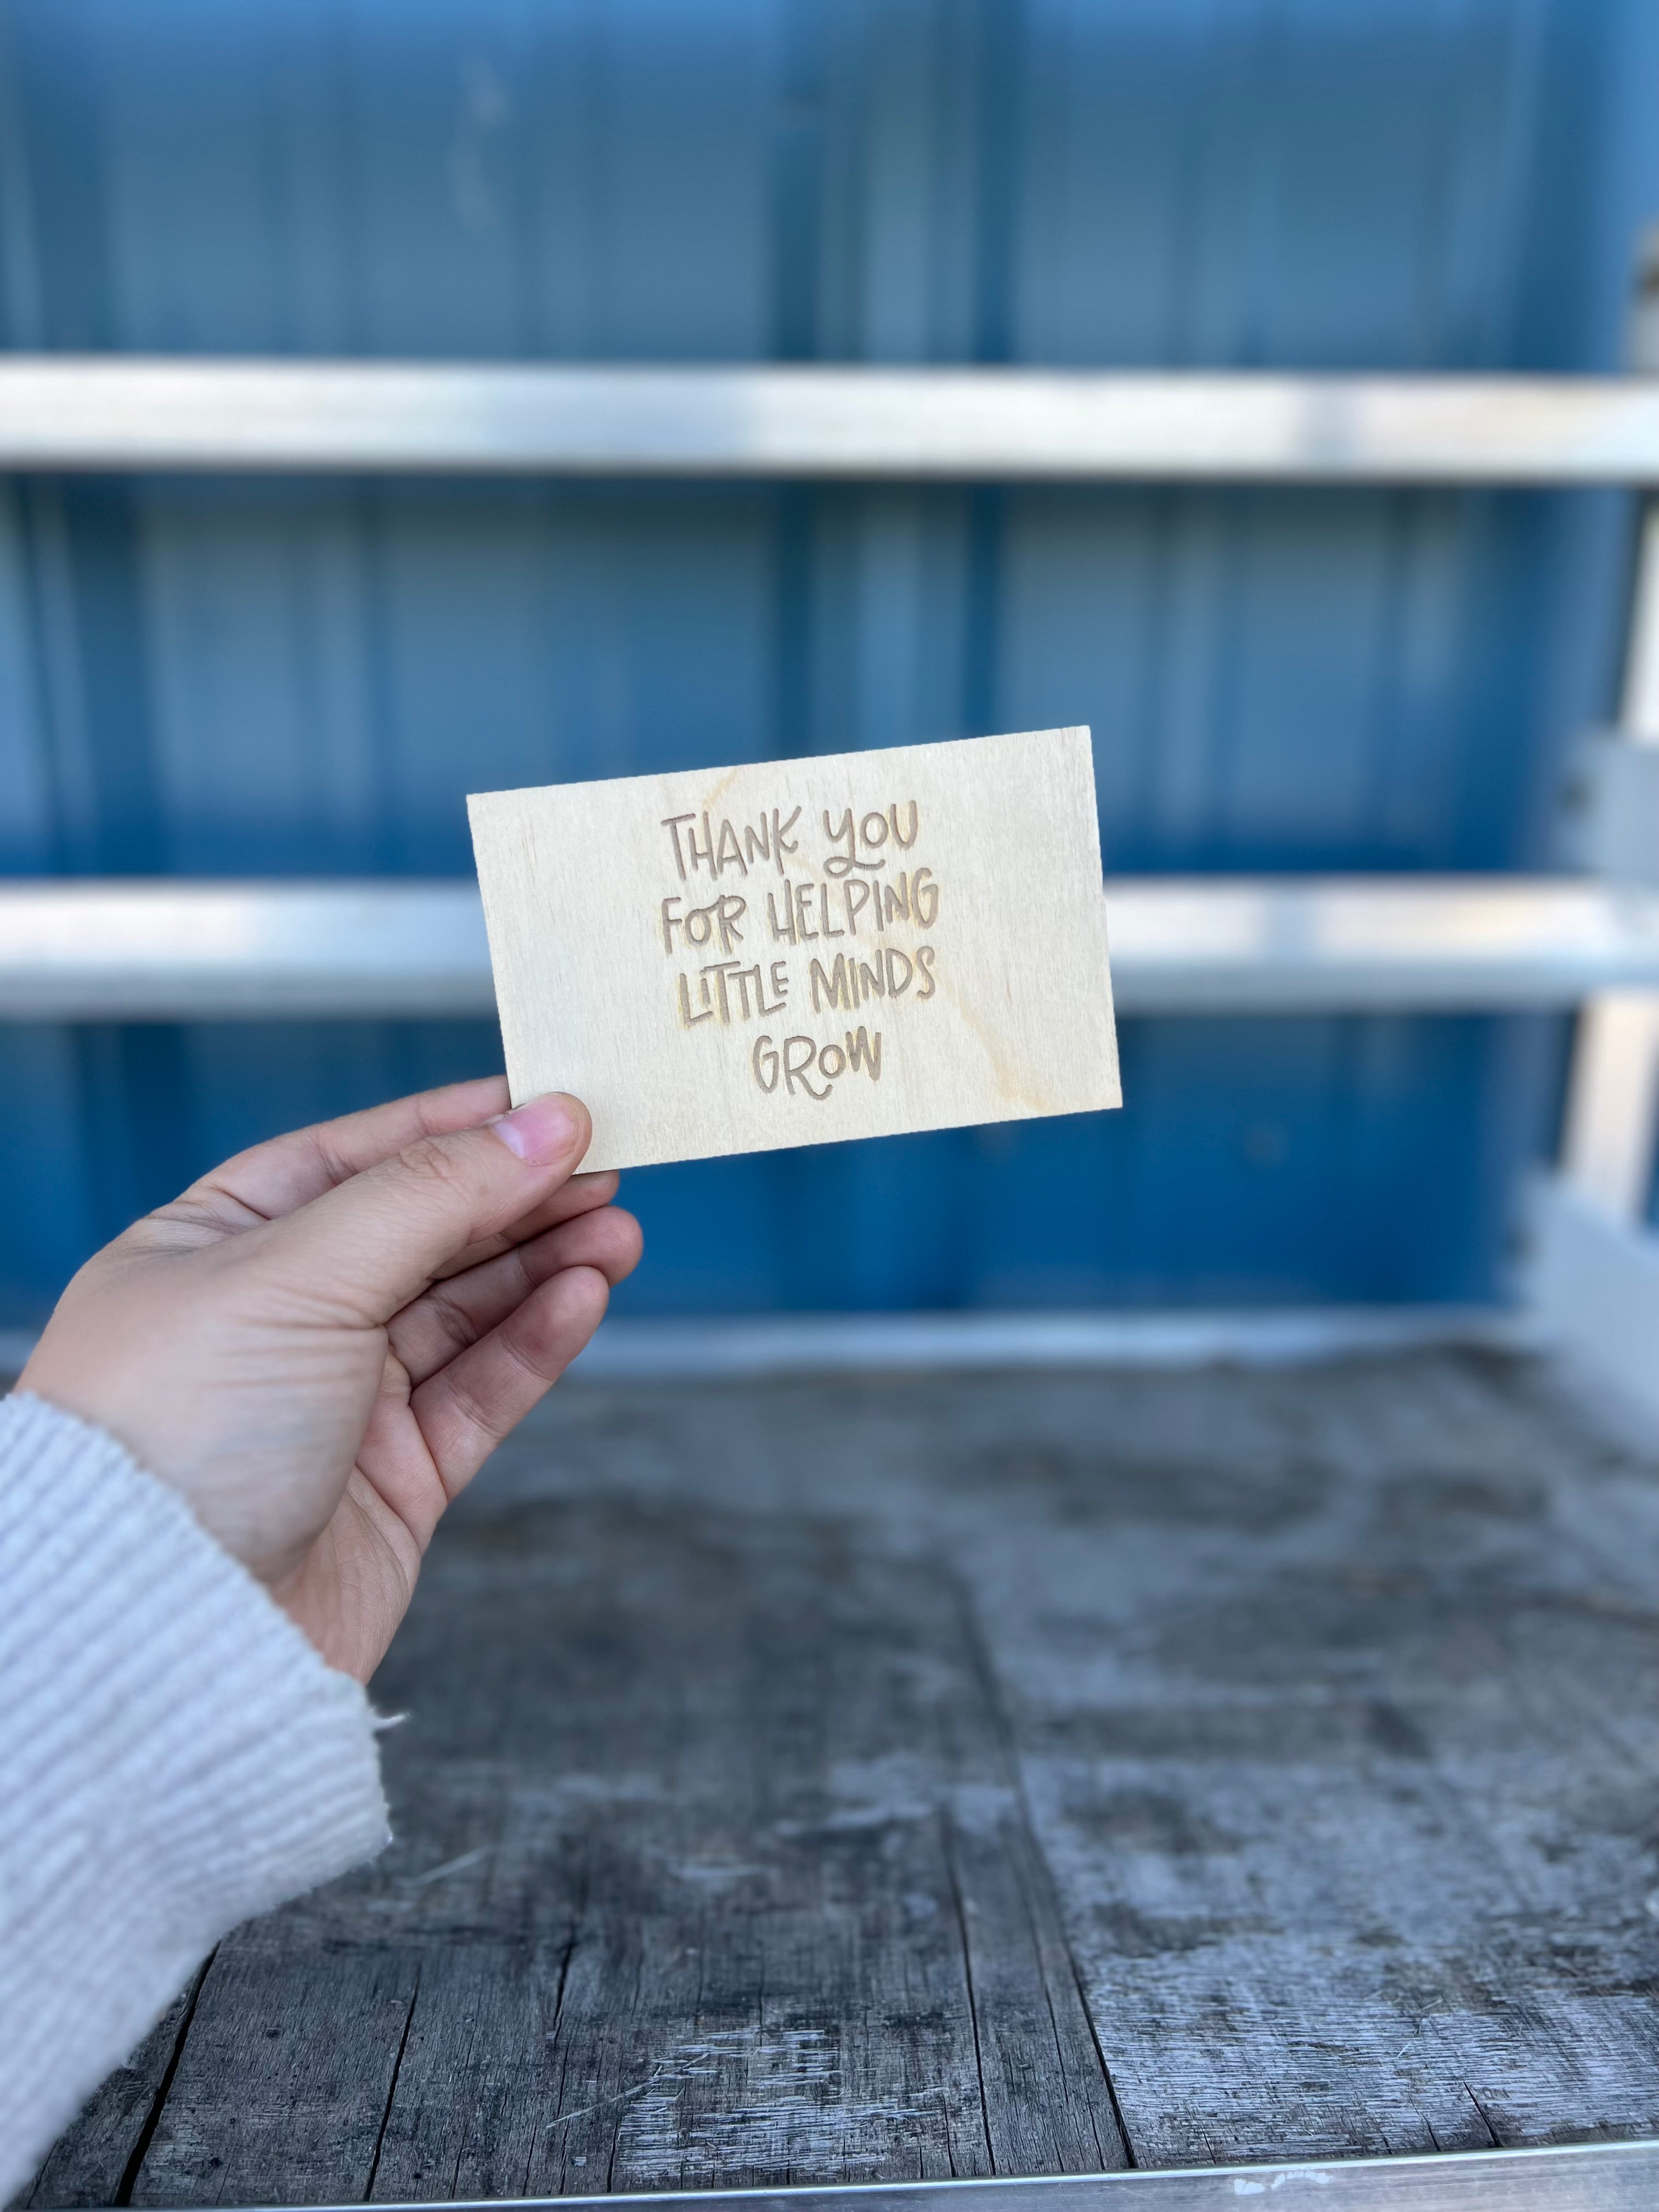 THANK YOU
FOR HELPING
LITTLE MINDS
GROW